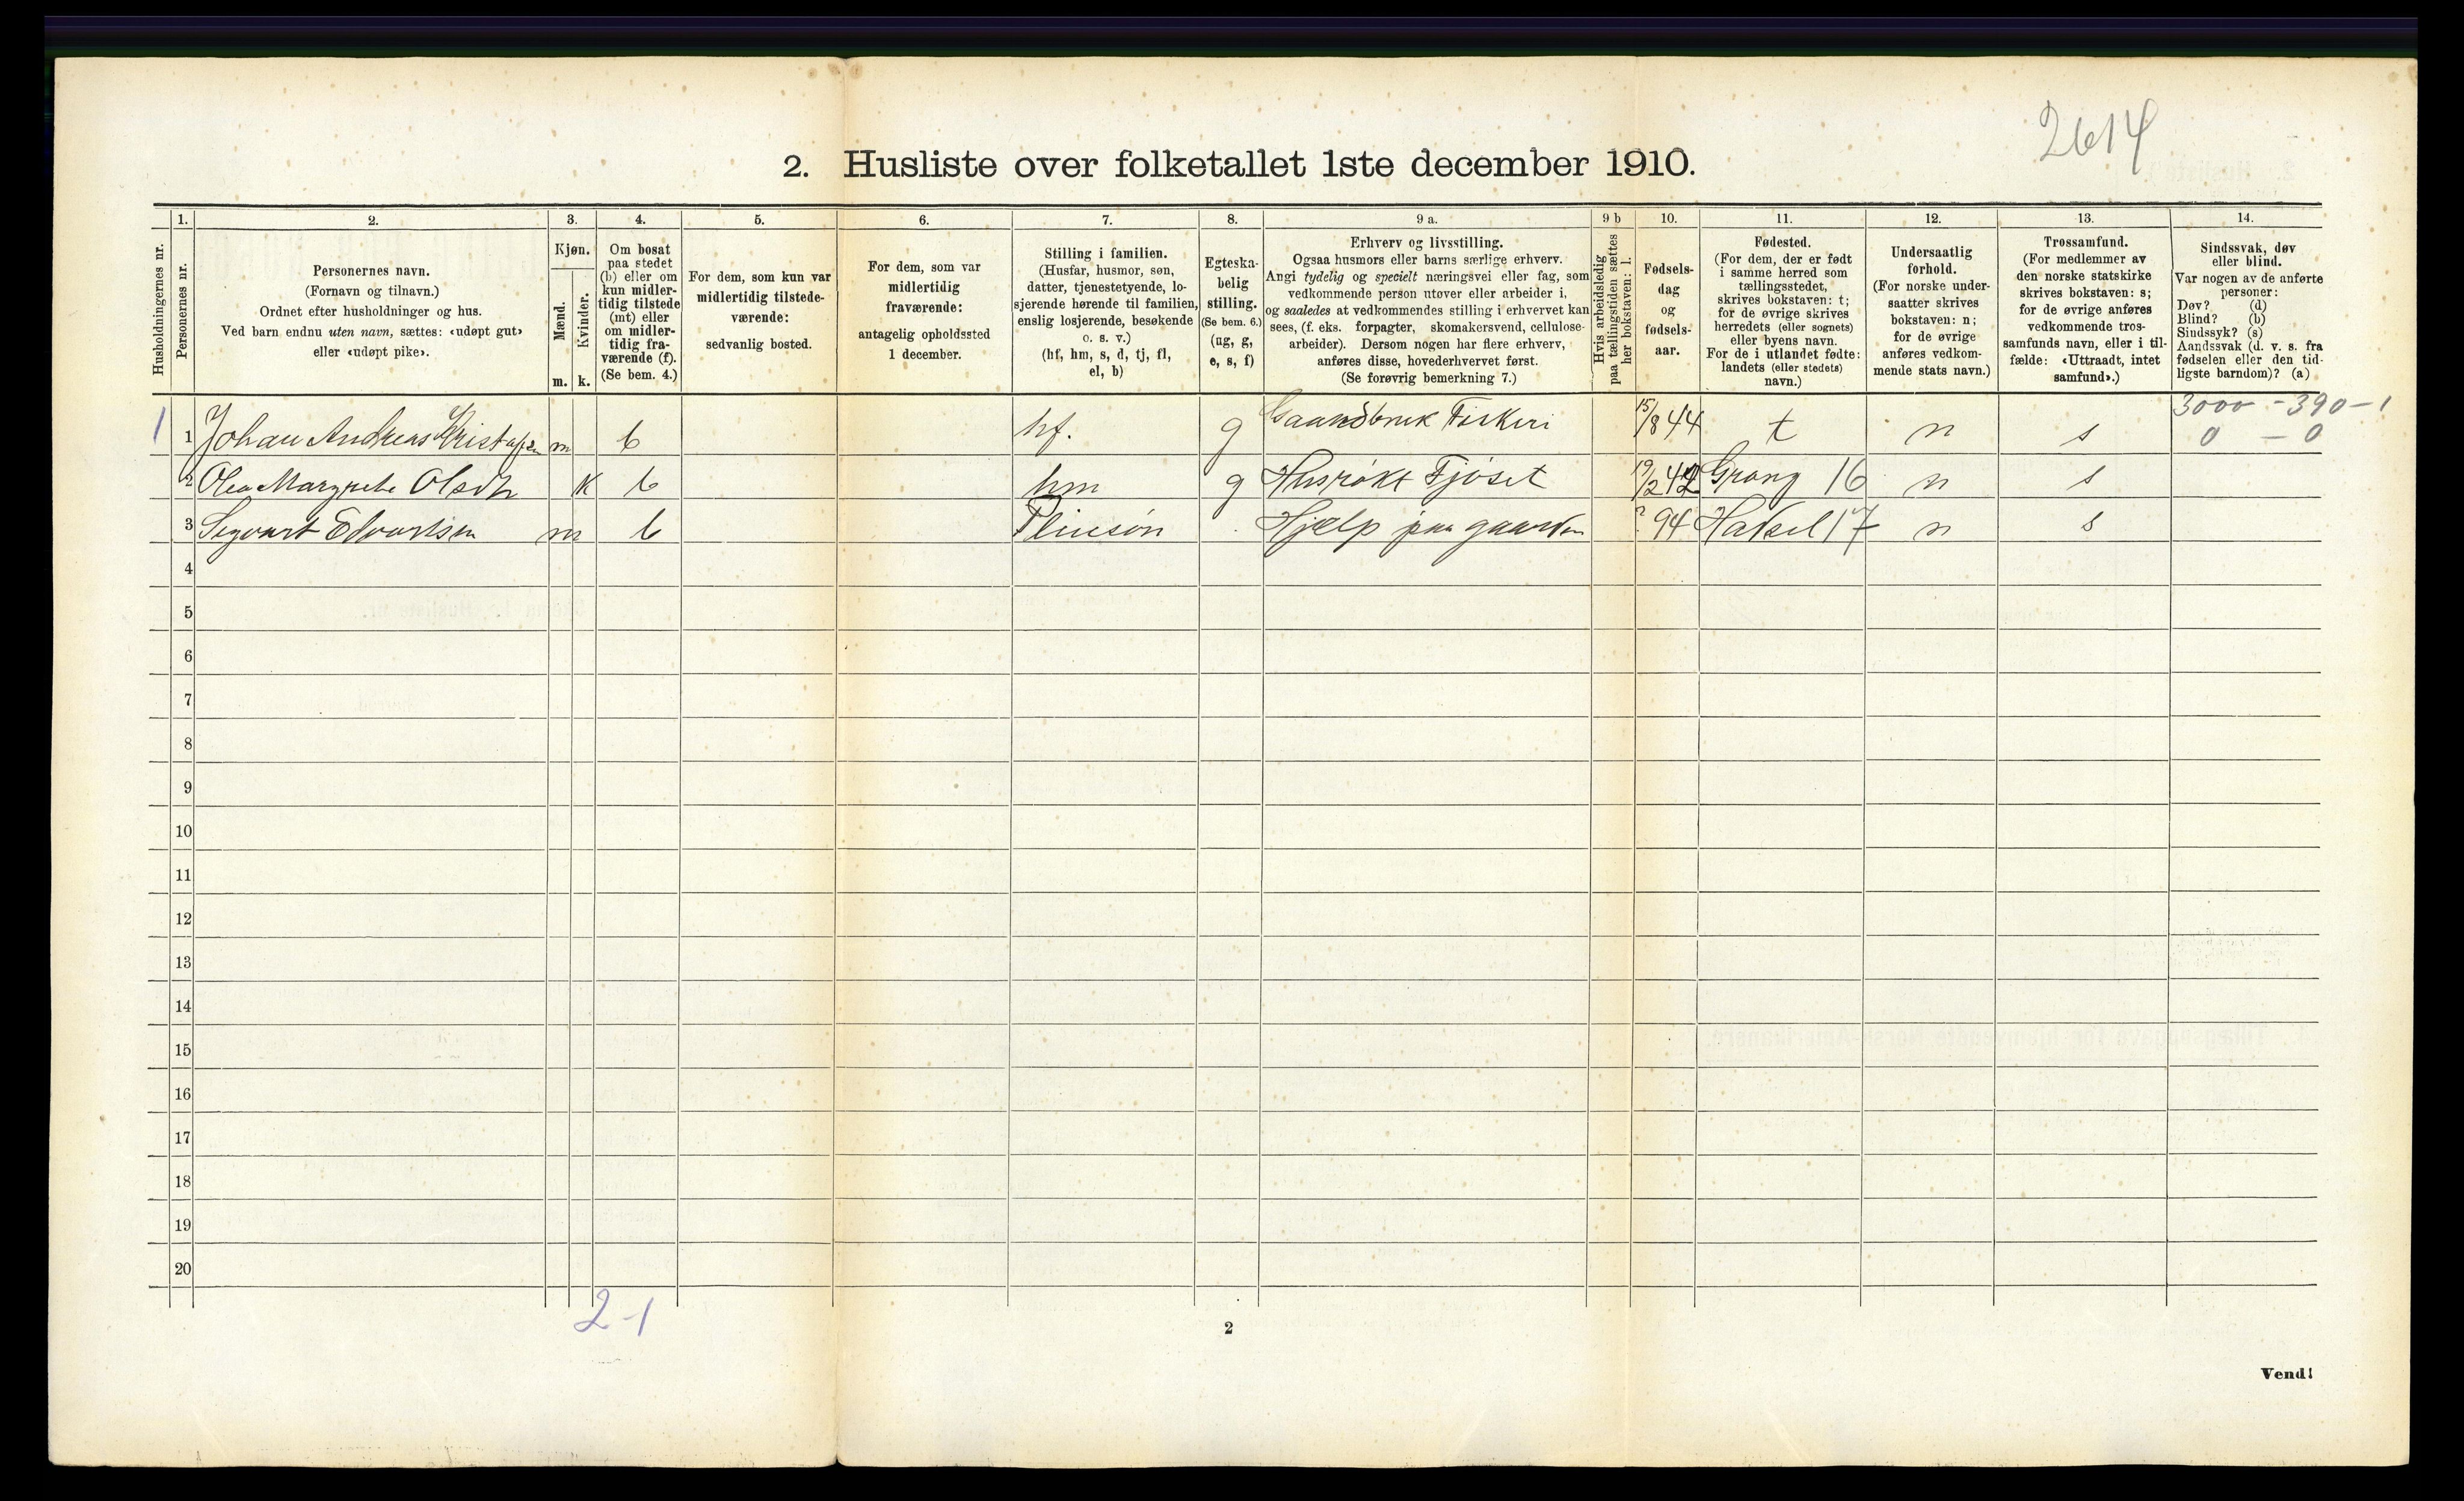 2614
2. Husliste over folketallet 1ste december 1910.
Husholdningernes nr.
1.
Personernes nr.
2.
Personernes navn.
(Fornavn og tilnavn.)
Ordnet efter husholdninger og hus.
Ved barn endnu uten navn, sættes: «udøpt gut»
eller «udøpt pike».
3.
Kjøn.
Mænd.
Kvinder.
m. k.
4.
Om bosat
paa stedet
(b) eller om
kun midler-
tidig tilstede
(mt) eller
om midler-
tidig fra-
værende (f).
(Se bem. 4.)
5.
For dem, som kun var
midlertidig tilstede-
værende:
sedvanlig bosted.
6.
For dem, som var
midlertidig
fraværende:
antagelig opholdssted
1 december.
7.
Stilling i familien.
(Husfar, husmor, søn,
datter, tjenestetyende, lo-
sjerende hørende til familien,
enslig losjerende, besøkende
o. s. v.)
(hf, hm, s, d, tj, fl,
el, b)
8.
Egteska-
belig
stilling.
(Se bem. 6.)
(ug, g,
e, s, f)
9 a.
Erhverv og livsstilling.
Ogsaa husmors eller barns særlige erhverv.
Angi tydelig og specielt næringsvei eller fag, som
vedkommende person utøver eller arbeider i,
og saaledes at vedkommendes stilling i erhvervet kan
sees, (f. eks. forpagter, skomakersvend, cellulose-
arbeider). Dersom nogen har flere erhverv,
anføres disse, hovederhvervet først.
(Se forøvrig bemerkning 7.)
9 b
Hvis arbeidsledig
paa tællingstiden sættes
her bokstaven: l.
10.
Fødsels-
dag
og
fødsels-
aar.
11.
Fødested.
(For dem, der er født
i samme herred som
tællingsstedet,
skrives bokstaven: t;
for de øvrige skrives
herredets (eller sognets)
eller byens navn.
For de i utlandet fødte:
landets (eller stedets)
navn.)
12.
Undersaatlig
forhold.
(For norske under-
saatter skrives
bokstaven: n;
for de øvrige
anføres vedkom-
mende stats navn.)
13.
Trossamfund.
(For medlemmer av
den norske statskirke
skrives bokstaven: s;
for de øvrige anføres
vedkommende tros-
samfunds navn, eller i til-
fælde: «Uttraadt, intet
samfund».)
14.
Sindssvak, døv
eller blind.
Var nogen av de anførte
personer:
Døv? (d)
Blind? (b)
Sindssyk? (s)
Aandssvak (d. v. s. fra
fødselen eller den tid-
ligste barndom)? (a)
3000 - 390 - 1
0 - 0
1 1 Johan Andreas m b hf. g Gaardbruk Fiskeri 15/8 44 t n s
2 Olea Margrete Olsen k b hm g Husrøkt Fjøset 19/2 42 Grong 16 n s
3 Segvart Edvartsen m b Pleiesøn Hjælp paa gaarden ? 94 Hadsel 17 n s
4
5
6
7
8
9
10
11
12
13
14
15
16
17
18
19
20
2-1
2
Vend!